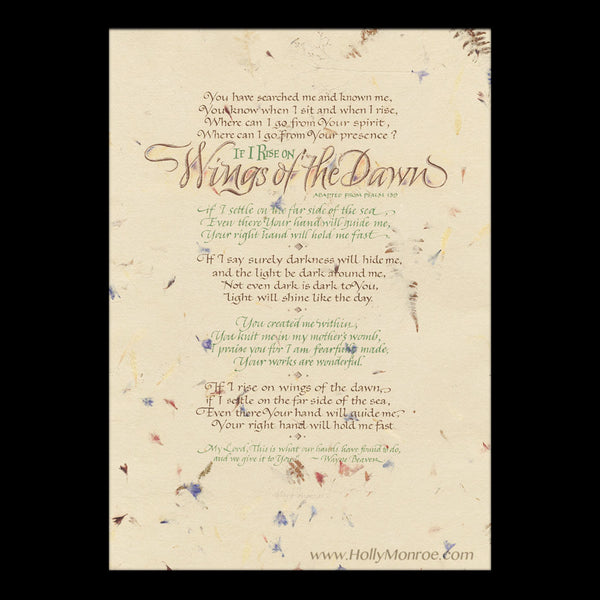 You have searched me and known me,
You know when I sit and when I rise,
Where can I go from Your spirit,
Where can I go from Your presence?
If I Rise on
Wings of the Dawn
Adapted from Psalm 139
if I settle on the far side of the sea
Even there Your hand will guide me,
Your right hand will hold me fast
If I say surely darkness will hide me,
and the light be dark around me,
Not even dark is dark to You,
Light will shine like the day.
You created me within,
You knit me in my mother's womb,
I praise you for I am fearfully made,
Your works are wonderful.
If I rise on wings of the dawn,
if I settle on the far side of the sea,
Even there Your hand will guide me,
Your right hand will hold me fast
My Lord, This is what our hands have found to do,
and we give it to You. ~ Wayne Beaven
www.HollyMonroe.com